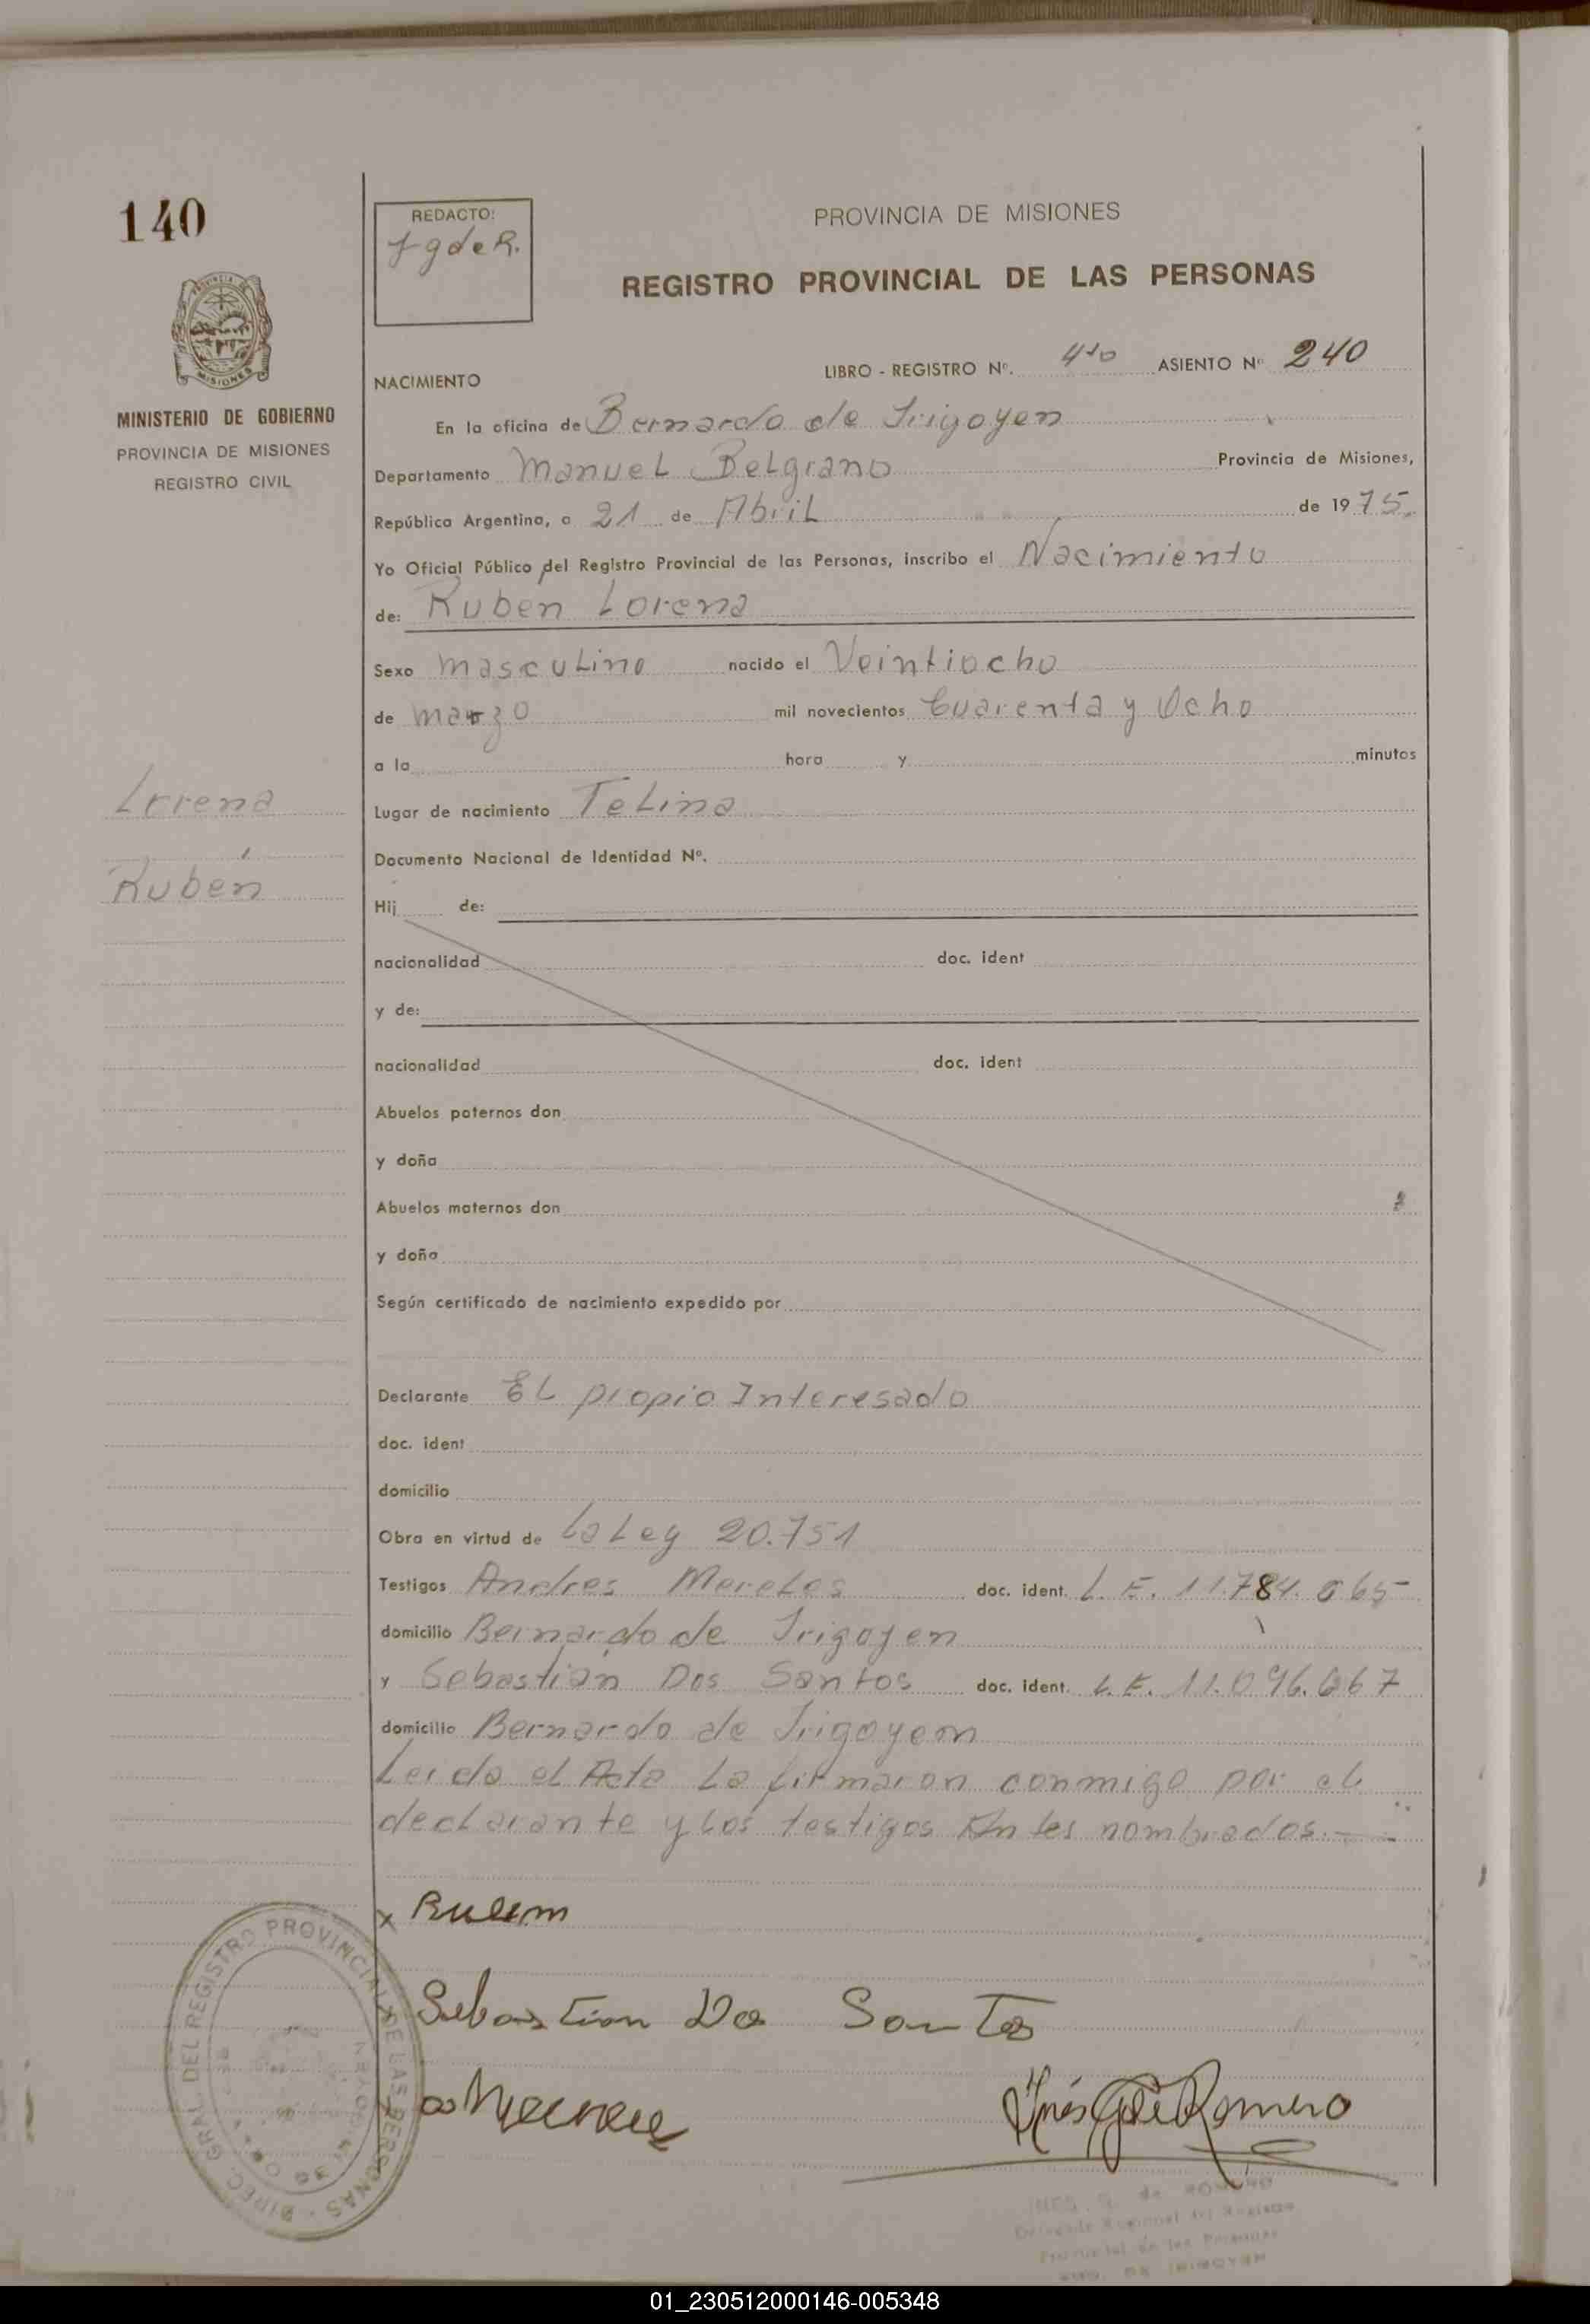 140
REDACTO:
PROVINCIA DE MISIONES
REGISTRO PROVINCIAL DE LAS PERSONAS
MISIONES
MINISTERIO DE GOBIERNO
PROVINCIA DE MISIONES
REGISTRO CIVIL
LIBRO - REGISTRO Nº. ASIENTO Nº 240
NACIMIENTO
En la oficina de Bernardo de Irigoyen
Departamento Manuel Belgrano Provincia de Misiones,
República Argentina, a 21 de Abril de 1975.
Yo Oficial Público del Registro Provincial de las Personas, inscribo el Nacimiento
de: Ruben Lorena
Sexo masculino nacido el Veintiocho
de marzo mil novecientos Cuarenta y Ocho
a la hora y minutos
Lorena
Lugar de nacimiento Telina
Documento Nacional de Identidad Nº.
Rubén
Hij de:
nacionalidad doc. ident
y de:
nacionalidad doc. ident
Abuelos paternos don
y doña
Abuelos maternos don
y doña
Según certificado de nacimiento expedido por
Declarante El propio Interesado
doc. ident
domicilio
Obra en virtud de la Ley 20.751
Testigos Andres Mereles doc. ident. L.E. 11.784.065
domicilio Bernardo de Irigoyen
y Sebastián Dos Santos doc. ident. L.E. 11.096.667
domicilio Bernardo de Irigoyen
Leida el Acta la firmaron conmigo por el
declarante y los testigos Antes nombrados.-
x Rubem
Sebastian Dos Santos
Inés G de Romero
DIREC. GRAL. DEL REGISTRO PROVINCIAL DE LAS PERSONAS
INES G. de ROMERO
Delegada Regional del Registro
Provincial de las Personas
BDO. DE IRIGOYEN
01_230512000146-005348